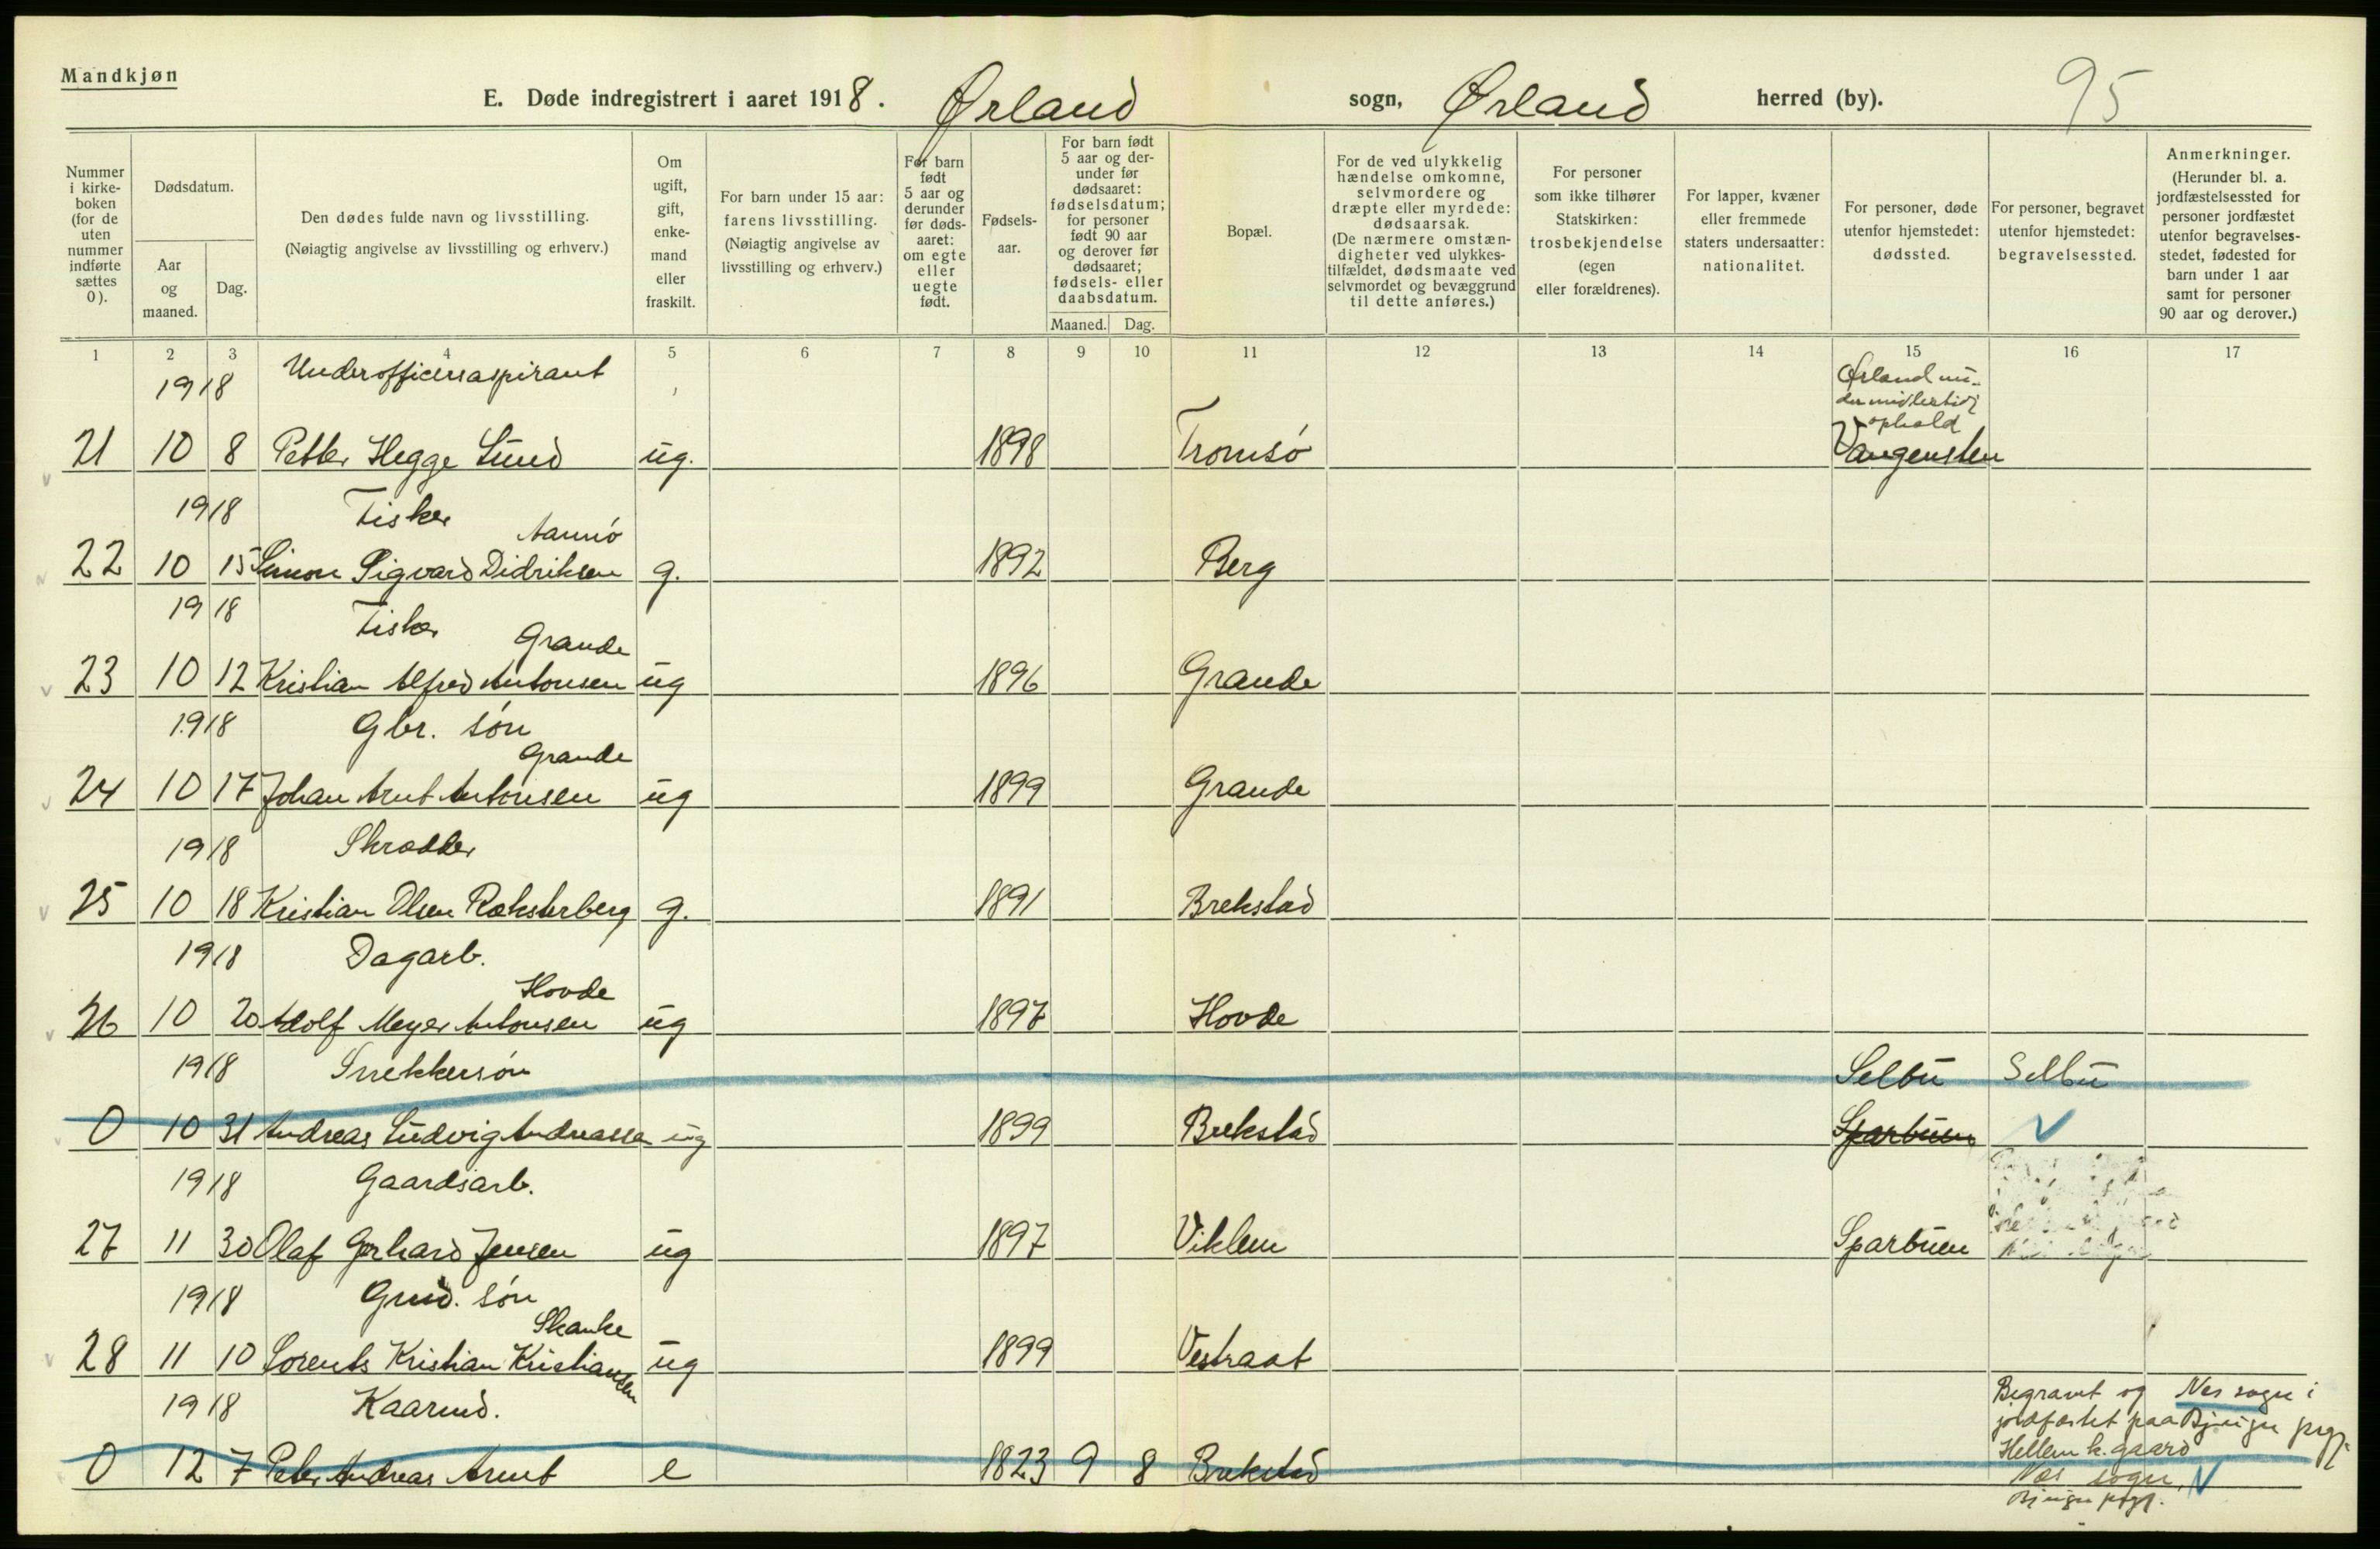 Mandkjøn
E. Døde indregistrert i aaret 1918. Ørland sogn, Ørland herred (by). 95
Nummer i kirkeboken (for de uten nummer indførte sættes 0).
Dødsdatum.
Aar og maaned.
Dag.
Den dødes fulde navn og livsstilling.
(Nøiagtig angivelse av livsstilling og erhverv.)
Om ugift, gift, enkemand eller fraskilt.
For barn under 15 aar: farens livsstilling.
(Nøiagtig angivelse av livsstilling og erhverv.)
For barn født 5 aar og derunder før dødsaaret: om egte eller uegte født.
Fødselsaar.
For barn født 5 aar og derunder før dødsaaret: fødselsdatum; for personer født 90 aar og derover før dødsaaret; fødsels- eller daabsdatum.
Maaned. Dag.
Bopæl.
For de ved ulykkelig hændelse omkomne, selvmordere og dræpte eller myrdede: dødsaarsak.
(De nærmere omstændigheter ved ulykkestilfældet, dødsmaate ved selvmordet og bevæggrund til dette anføres.)
For personer som ikke tilhører Statskirken: trosbekjendelse (egen eller forældrenes).
For lapper, kvæner eller fremmede staters undersaatter: nationalitet.
For personer, døde utenfor hjemstedet: dødssted.
For personer, begravet utenfor hjemstedet: begravelsessted.
Anmerkninger.
(Herunder bl. a. jordfæstelsessted for personer jordfæstet utenfor begravelsesstedet, fødested for barn under 1 aar samt for personer 90 aar og derover.)
1 2 3 4 5 6 7 8 9 10 11 12 13 14 15 16 17
1918 Underofficersaspirant Ørland un-
der midlertidig
ophold
21 10 8 Petter Hegge Lund ug. 1898 Tromsø Vangensten
1918 Fisker
22 10 15 Simon Sigvard Didriksen g. 1892 Berg
1918 Fisker Grande
23 10 12 Kristian Alfred Antonsen ug 1896 Grande
1918 Gbr. søn Grande
24 10 17 Johan Arnt Antonsen ug 1899 Grande
1918 Skrædder
25 10 18 Kristian Olsen Roksterberg g. 1891 Brekstad
1918 Dagarb. Hovde
26 10 20 Adolf Meyer Antonsen ug 1897 Hovde
1918 Snekkersøn Selbu Selbu
0 10 31 Andreas Ludvig Andreassen ug 1899 Brekstad Sparbuen
1918 Gaardsarb.
27 11 30 Olaf Gerhard Jensen ug 1897 Viklem Sparbuen
1918 Gmd. søn Skanke
28 11 10 Lorents Kristian Kristiansen ug 1899 Vestraat
1918 Kaarmd. Begravet og Nes sogn i
jordfæstet paa Bjugn prgj.
Hellem k. gaard
0 12 7 Peter Andreas Arent e 1823 9 8 Brekstad Nes sogn,
Bjugn prgj.